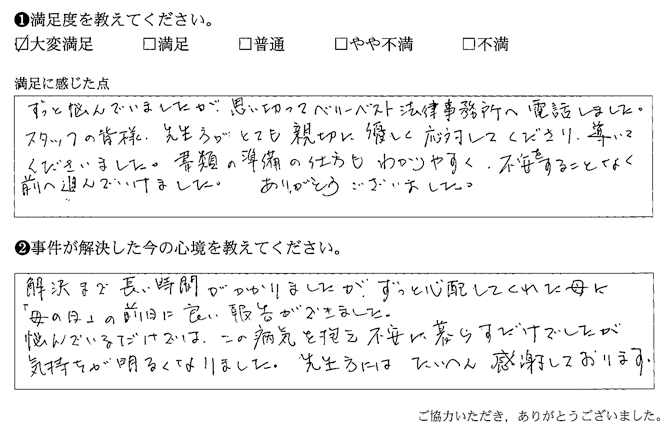 ❶満足度を教えてください。
☑大変満足 □満足 □普通 □やや不満 □不満
満足に感じた点
ずっと悩んでいましたが、思い切ってベリーベスト法律事務所へ電話しました。
スタッフの皆様、先生方がとても親切に優しく応対してくださり、導いて
くださいました。書類の準備の仕方もわかりやすく、不安をすることなく
前へ進んでいけました。 ありがとうございました。
❷事件が解決した今の心境を教えてください。
解決まで長い時間がかかりましたが、ずっと心配してくれた母に
「母の日」の前日に良い報告ができました。
悩んでいるだけでは、この病気を抱え不安に暮らすだけでしたが
気持ちが明るくなりました。先生方には たいへん感謝しております。
ご協力いただき，ありがとうございました。